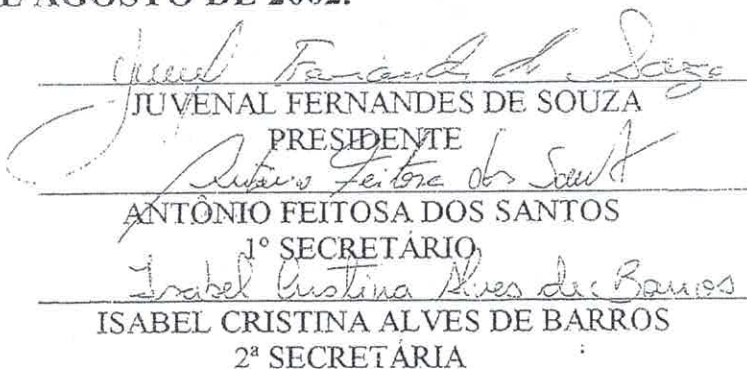 E AGOSTO DE 2002.
Juvenal Fernandes de Souza
JUVENAL FERNANDES DE SOUZA
PRESIDENTE
Antônio Feitosa dos Santos
ANTÔNIO FEITOSA DOS SANTOS
1º SECRETÁRIO
Isabel Cristina Alves de Barros
ISABEL CRISTINA ALVES DE BARROS
2ª SECRETÁRIA